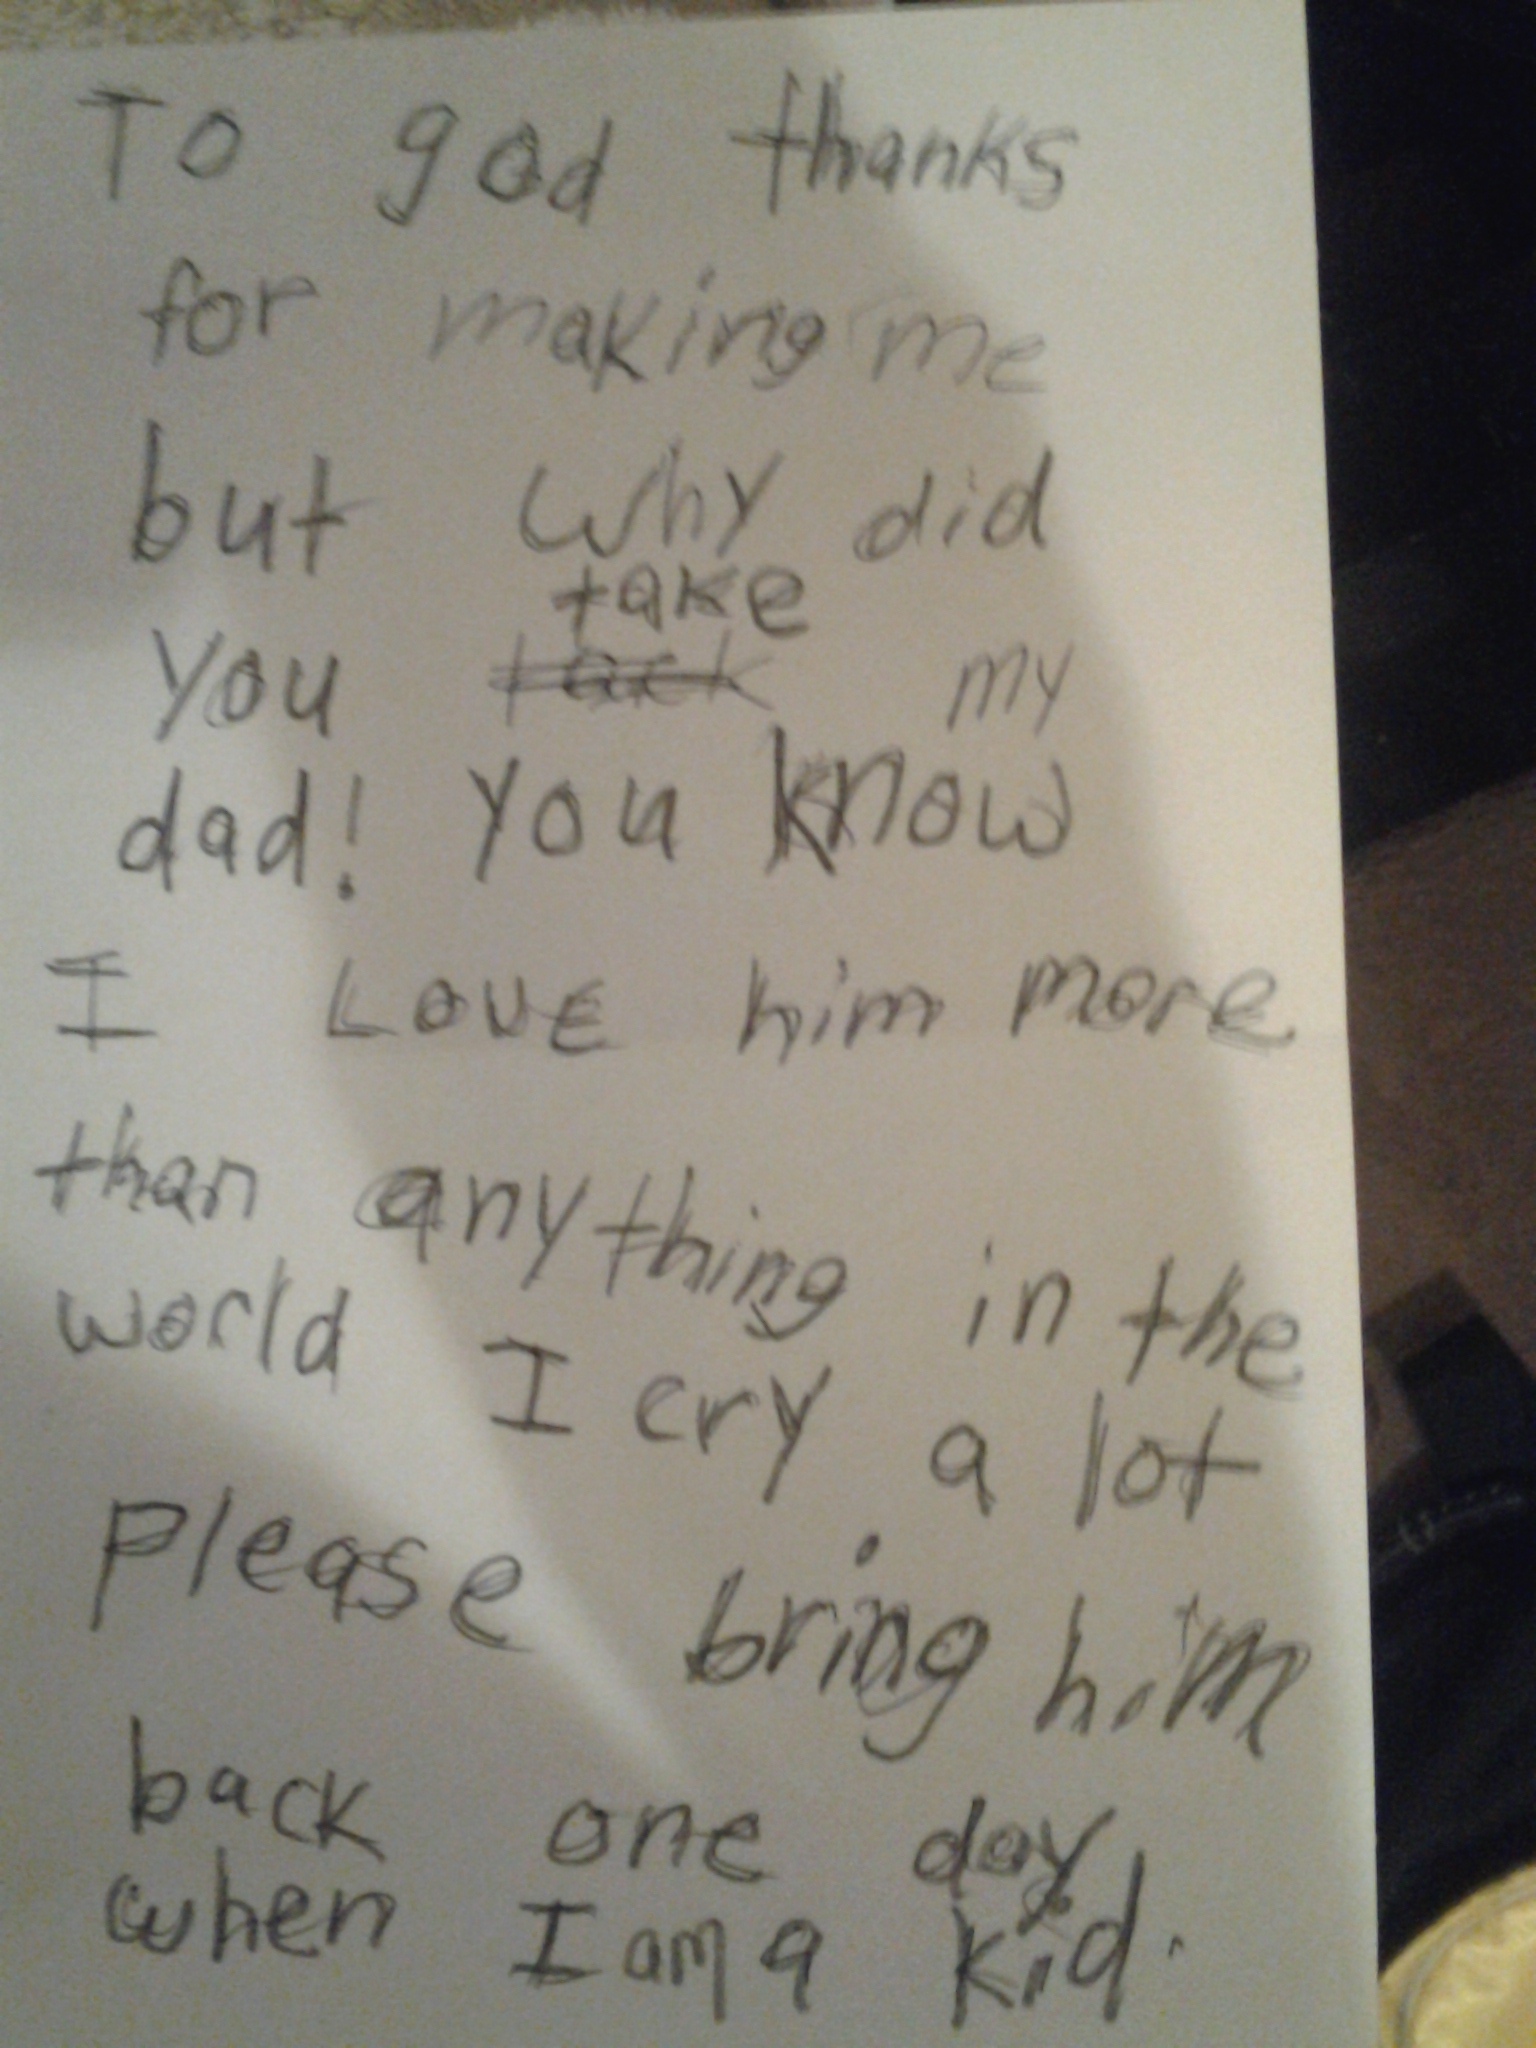 To god thanks
for making me
but why did
take
you tack my
dad! you know
I Love him more
than anything in the
world I cry a lot
Please bring him
back one day
when I am a kid.